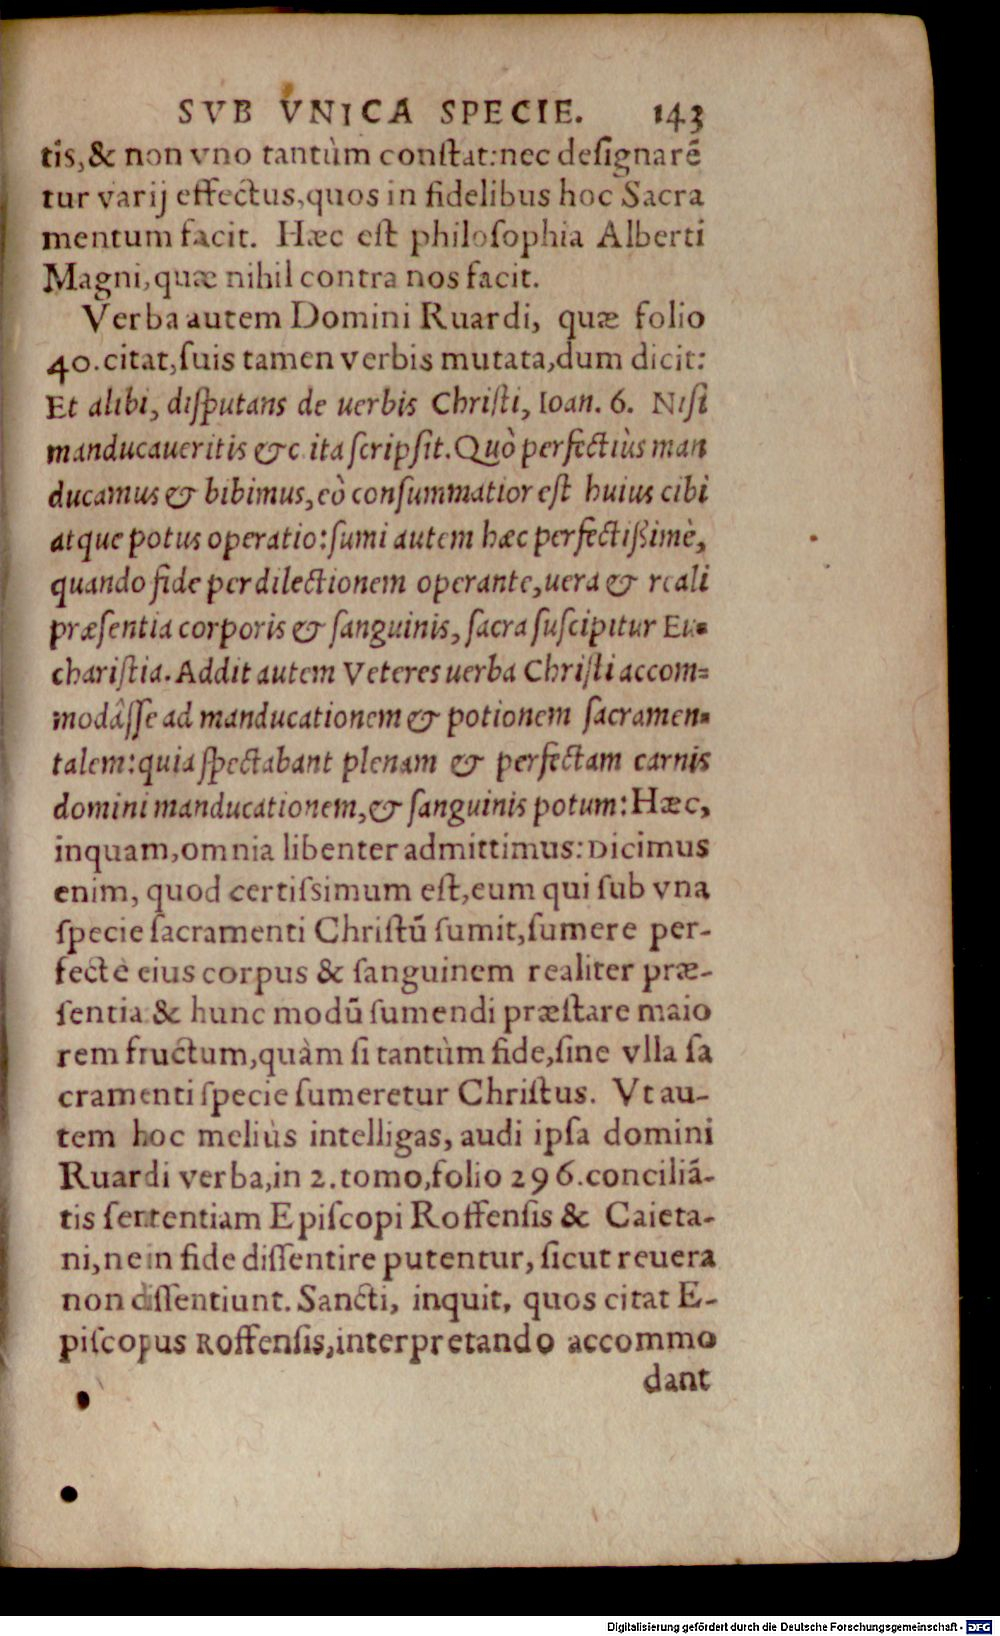 SVB VNICA SPECIE. 143
tis, & non vno tantùm conſtat: nec deſignarẽ
tur varij effectus, quos in fidelibus hoc Sacra
mentum facit. Hæc eſt philoſophia Alberti
Magni, quæ nihil contra nos facit.
Verba autem Domini Ruardi, quæ folio
40. citat, ſuis tamen verbis mutata, dum dicit:
Et alibi, diſputans de uerbis Chriſti, Ioan. 6. Niſi
manducaueritis &c ita ſcripſit. Quò perfectiùs man
ducamus & bibimus, eò conſummatior eſt huius cibi
atque potus operatio: ſumi autem hæc perfectißimè,
quando fide per dilectionem operante, uera & reali
præſentia corporis & ſanguinis, ſacra ſuſcipitur Eu=
chariſtia. Addit autem Veteres uerba Chriſti accom=
modâſſe ad manducationem & potionem ſacramen=
talem: quia ſpectabant plenam & perfectam carnis
domini manducationem, & ſanguinis potum: Hæc,
inquam, omnia libenter admittimus: Dicimus
enim, quod certiſsimum eſt, eum qui ſub vna
ſpecie ſacramenti Chriſtũ ſumit, ſumere per-
fectè eius corpus & ſanguinem realiter præ-
ſentia & hunc modũ ſumendi præſtare maio
rem fructum, quàm ſi tantùm fide, ſine vlla ſa
cramenti ſpecie ſumeretur Chriſtus. Vt au-
tem hoc meliùs intelligas, audi ipſa domini
Ruardi verba, in 2. tomo, folio 296. conciliã-
tis ſententiam Epiſcopi Roffenſis & Caieta-
ni, ne in fide diſſentire putentur, ſicut reuera
non diſſentiunt. Sancti, inquit, quos citat E-
piſcopus Roffenſis, interpretando accommo
dant
Digitalisierung gefördert durch die Deutsche Forschungsgemeinschaft - DFG